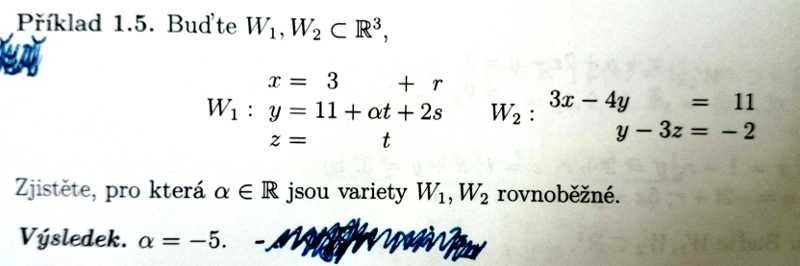 Příklad 1.5. Buďte W₁, W₂ ⊂ ℝ³,
x = 3 + r
W₁ : y = 11 + αt + 2s
z = t
W₂ : 3x − 4y = 11
y − 3z = − 2
Zjistěte, pro která α ∈ ℝ jsou variety W₁, W₂ rovnoběžné.
Výsledek. α = −5. -